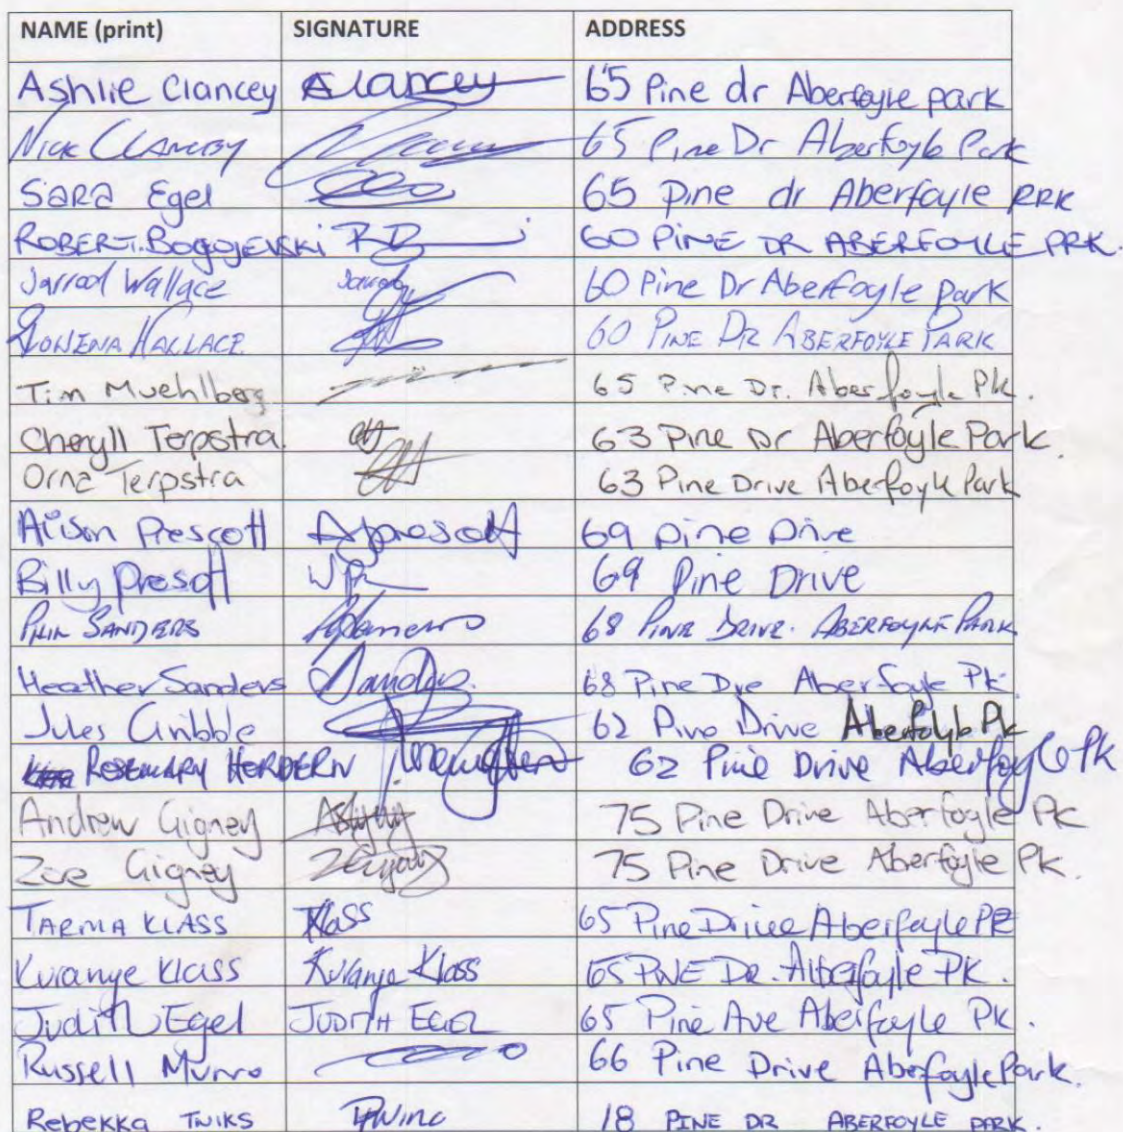 NAME (print) SIGNATURE ADDRESS
Ashlie Clancey Clancey 65 Pine dr Aberfoyle park
Nick Clancey 65 Pine Dr Aberfoyle Park
Sara Egel 65 Pine dr Aberfoyle PRK
ROBERT.BOGOJEVSKI RB 60 PINE DR ABERFOYLE PRK.
Jarrod Wallace Jarrod 60 Pine Dr Aberfoyle park
60 PINE DR ABERFOYLE PARK
Tim Muehlberg 65 Pine Dr. Aberfoyle Pk.
Cheryll Terpstra 63 Pine Dr Aberfoyle Park.
Terpstra 63 Pine Drive Aberfoyle Park
Alison Prescott Aprescott 69 pine Drive
Billy Presott 69 Pine Drive
PHIL SANDERS 68 PINE DRIVE. ABERFOYLE PARK
Heather Sanders Sanders 68 Pine Dve Aberfoyle Pk
Jules Gribble 62 Pine Drive Aberfoyle Pk
ROSEMARY HERDERN 62 Pine Drive Aberfoyle Pk
Andrew Gigney 75 Pine Drive Aberfoyle Pk
Zoe Gigney 75 Pine Drive Aberfoyle Pk.
TARMA KLASS Klass 65 Pine Drive Aberfoyle PK
Kuranye Klass Kuranye Klass 65 PINE DR. Aberfoyle PK.
Judith Egel JUDITH EGEL 65 Pine Ave Aberfoyle Pk.
Russell Munro 66 Pine Drive Aberfoyle Park.
Rebekka TWIKS 18 PINE DR ABERFOYLE PARK.